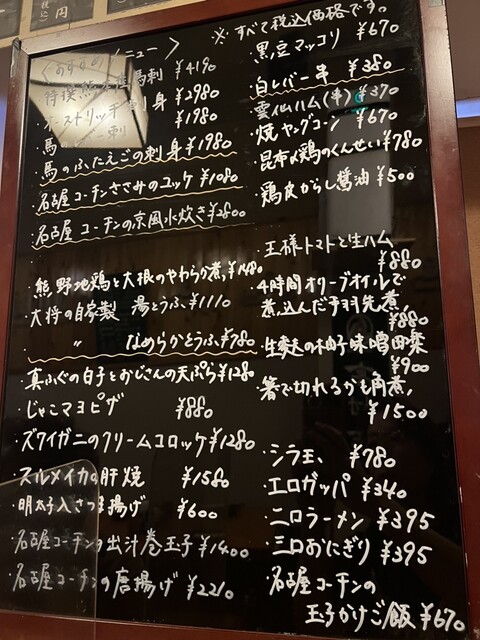 円
税込
※すべて税込価格です。
〈おすすめメニュー〉
特撰熊本産馬刺 ¥4190
オーストリッチ 刺身 ¥2980
馬 刺 ¥1980
馬のふたえごの刺身 ¥1980
名古屋コーチンささみのユッケ ¥1080
名古屋コーチンの京風水炊き ¥2800
・熊野地鶏と大根のやわらか煮 ¥1480
・大将の自家製 湯とうふ ¥1110
〃 なめらかとうふ ¥780
・真ふぐの白子とおじさんの天ぷら ¥1280
・じゃこマヨピザ ¥880
・ズワイガニのクリームコロッケ ¥1280
・スルメイカの肝焼 ¥1580
・明太子入さつま揚げ ¥600
・名古屋コーチンの出汁巻玉子 ¥1400
・名古屋コーチンの唐揚げ ¥2210
・黒豆マッコリ ¥670
・白レバー串 ¥380
・雲仙ハム(串) ¥370
・焼ヤングコーン ¥670
・昆布〆鶏のくんせい ¥780
・鶏皮がらし醬油 ¥500
・王様トマトと生ハム
¥880
・4時間オリーブオイルで
煮込んだ手羽先煮
¥880
・生麩の柚子味噌田楽
¥900
・箸で切れるかも角煮
¥1500
・シラ玉 ¥780
・エロガッパ ¥340
・二口ラーメン ¥395
・三口おにぎり ¥395
・名古屋コーチンの
玉子かけご飯 ¥670